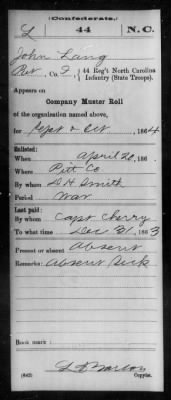 (Confederate.)
L 44 N.C.
John Lang
Pvt, Co. I, 44 Reg't North Carolina
Infantry (State Troops).
Appears on
Company Muster Roll
of the organization named above,
for Sept & Oct, 1864
Enlisted:
When April 20, 186
Where Pitt Co
By whom D H Smith
Period War
Last paid:
By whom Capt Cherry
To what time Dec 31, 1863
Present or absent Absent
Remarks: Absent Sick
Book mark:
(642) Copyist.